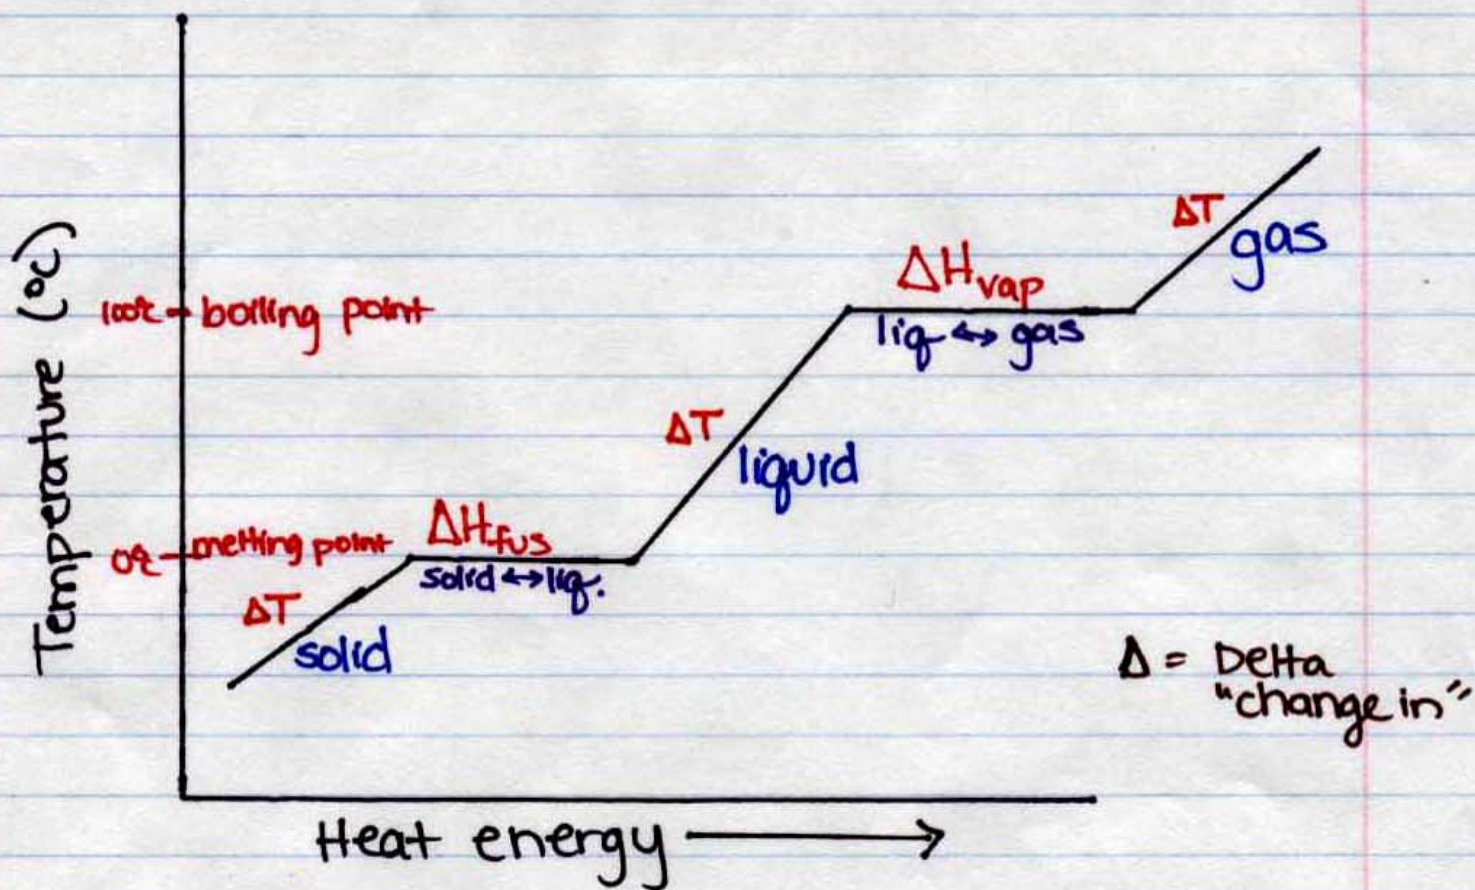 Temperature (°C)
100°C
boiling point
0°C
melting point
ΔT
solid
ΔH fus
solid ↔ liq.
ΔT
liquid
ΔH vap
liq ↔ gas
ΔT
gas
Δ = Delta
"change in"
Heat energy →